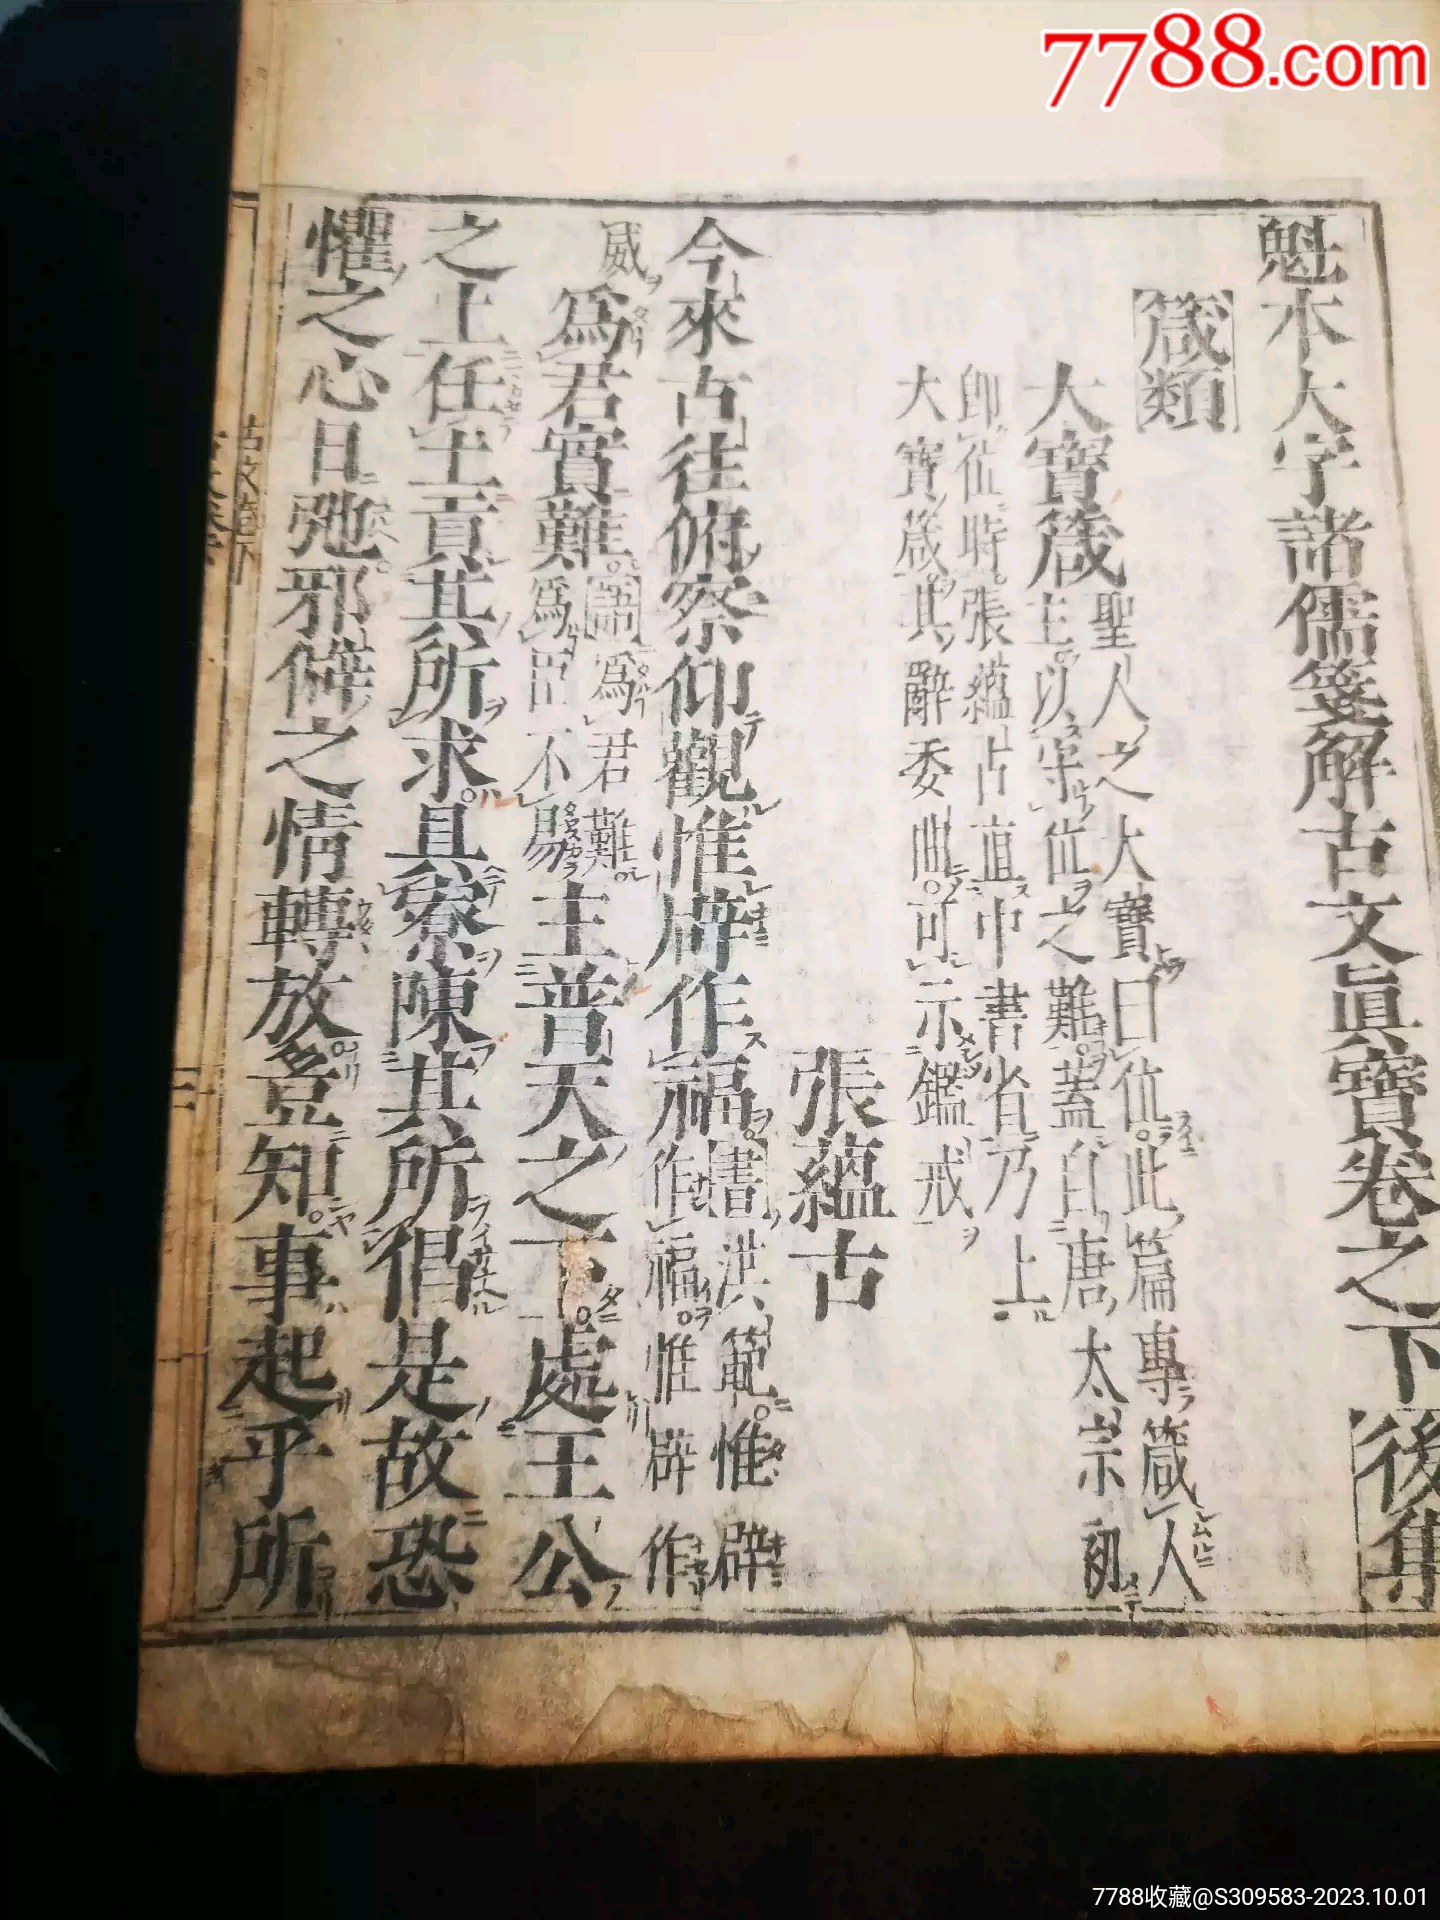 7788.com
魁本大字諸儒箋解古文眞寶卷之下後集
箴類
大寶箴
聖人之大寶曰位此篇專箴人
主以守位之難蓋自唐太宗初
卽位時張蘊古直中書省乃上
大寶箴其辭委曲可示鑑戒
張蘊古
今來古往俯察仰觀惟辟作福
書洪範惟辟
作福惟辟作
威
爲君實難
語爲君難
爲臣不易
主普天之下處王公
之上任土貢其所求具寮陳其所倡是故恐
懼之心日弛邪僻之情轉放豈知事起乎所
三
7788收藏@S309583-2023.10.01